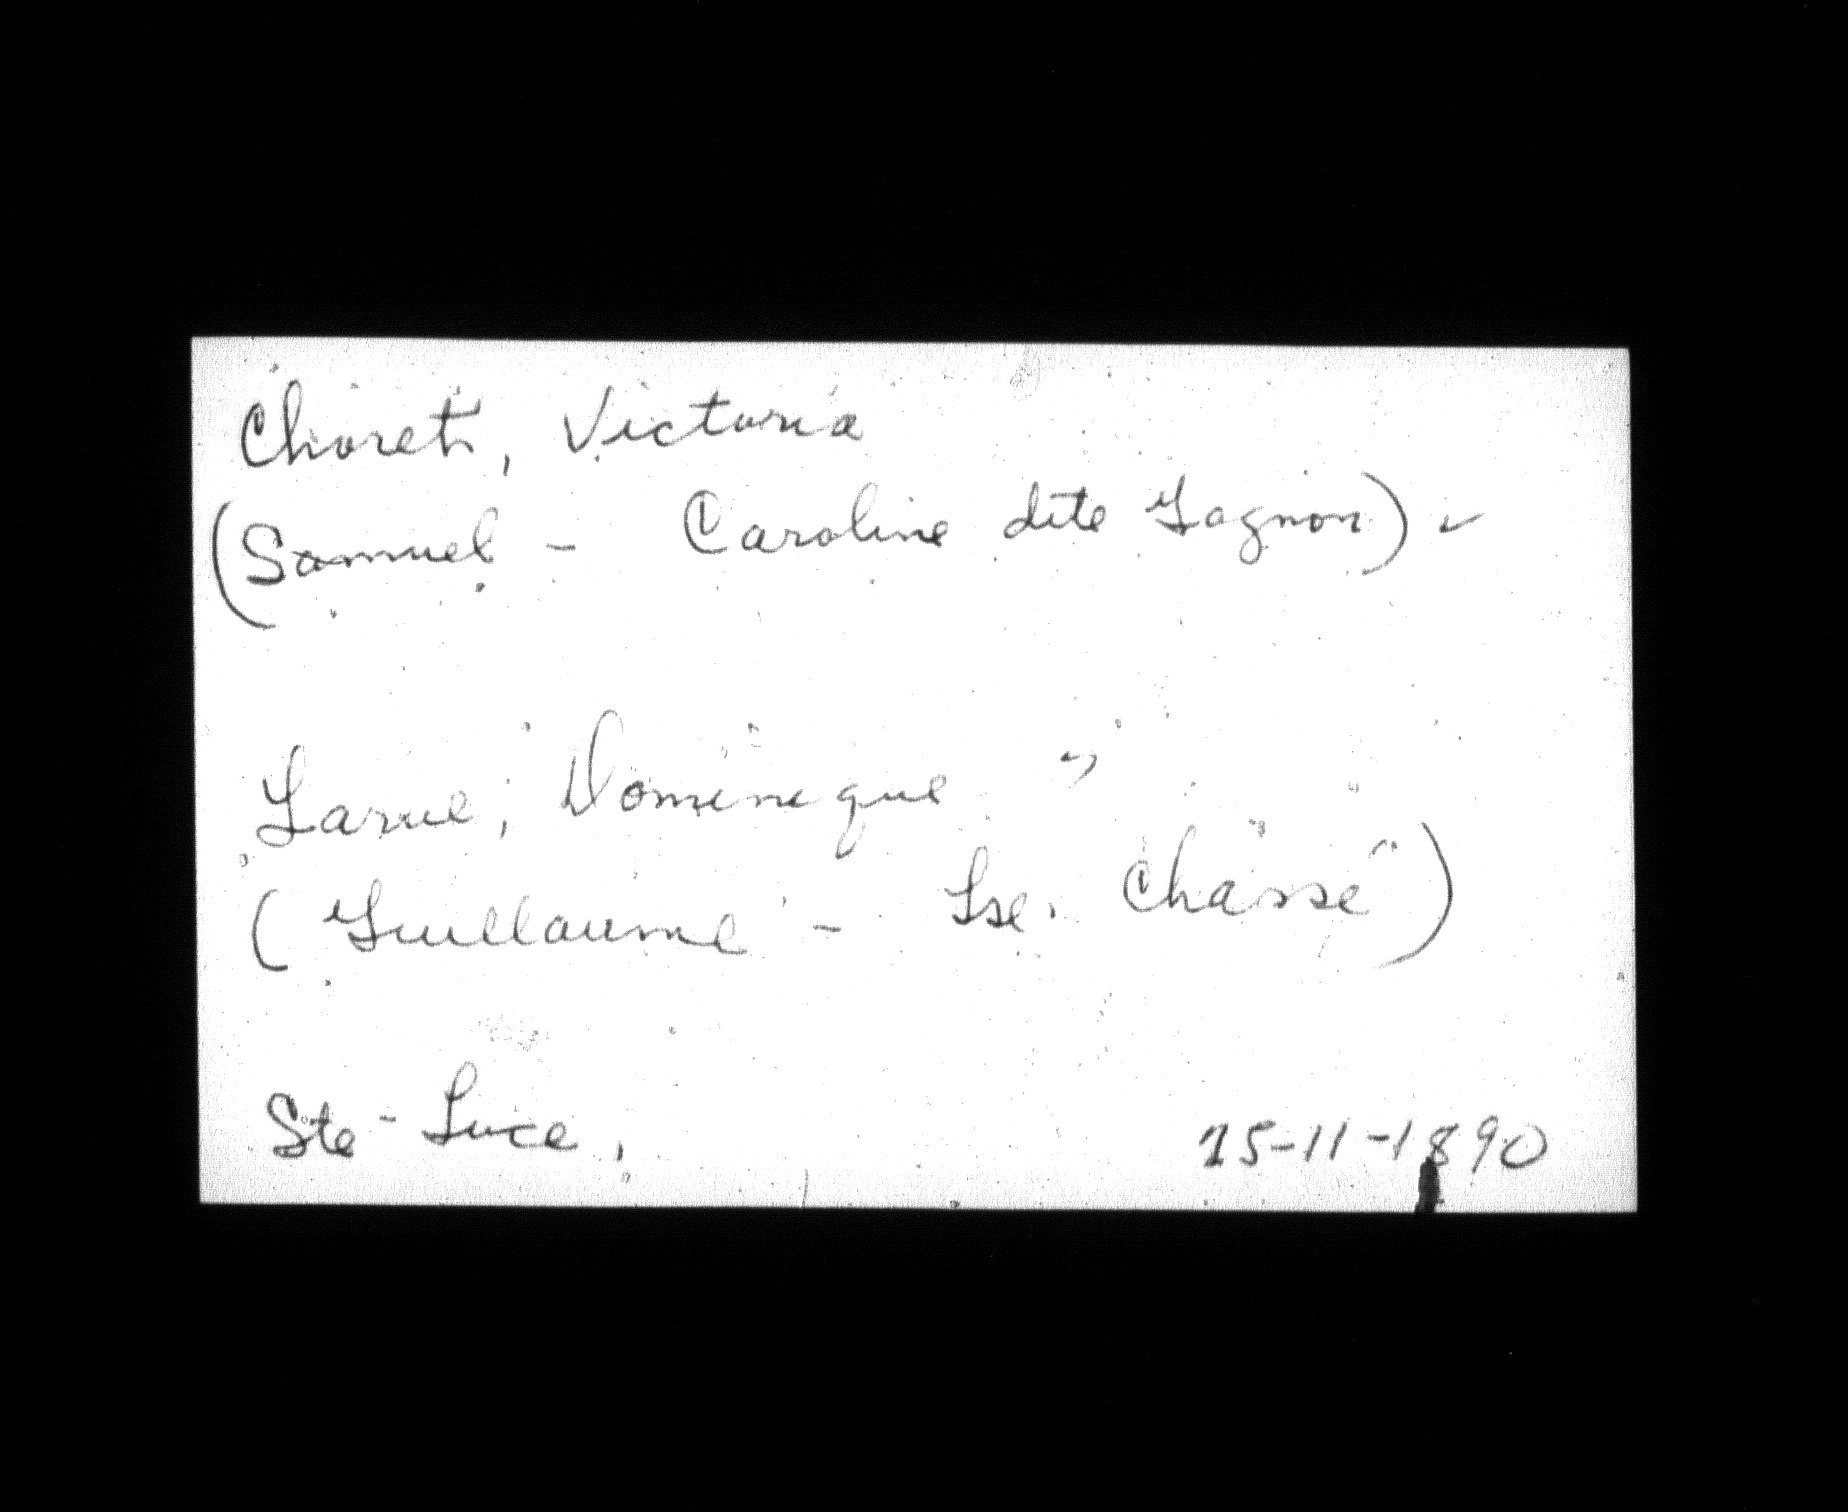 Choret, Victoria
(Samuel - Caroline dite Gagnon)
Larue, Dominique
(Guillaume - Lse. Chassé)
Ste-Luce, 25-11-1890